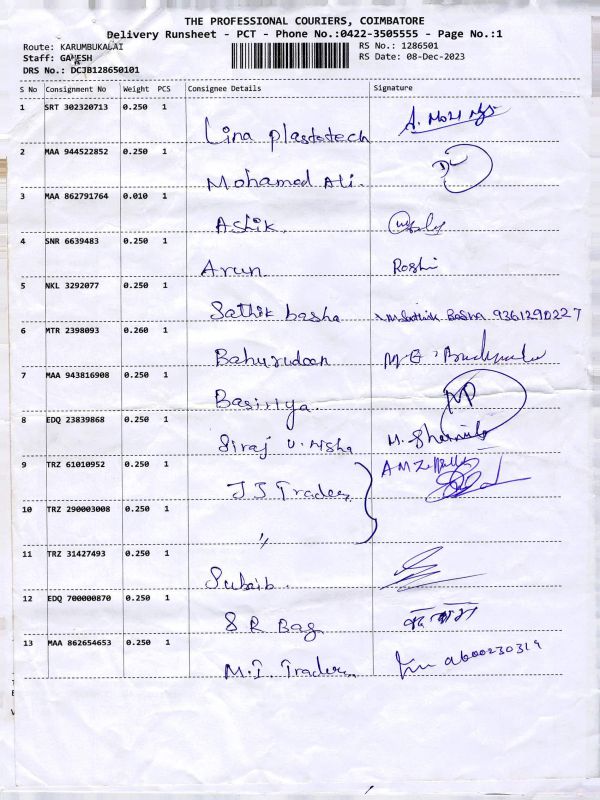 THE PROFESSIONAL COURIERS, COIMBATORE
Delivery Runsheet - PCT - Phone No.:0422-3505555 - Page No.:1
Route: KARUMBUKALAI RS No.: 1286501
Staff: GANESH RS Date: 08-Dec-2023
DRS No.: DCJB128650101
S No Consignment No Weight PCS Consignee Details Signature
1 SRT 302320713 0.250 1 Lina plastotech
2 MAA 944522852 0.250 1 Mohamed Ali.
3 MAA 862791764 0.010 1 Ashik.
4 SNR 6639483 0.250 1 Arun Roshi
5 NKL 3292077 0.250 1 Sathik basha M Sathik Basha 9361290227
6 MTR 2398093 0.260 1 Bahurudeen
7 MAA 943816908 0.250 1
8 EDQ 23839868 0.250 1 Siraj U. Nisha
9 TRZ 61010952 0.250 1 JJ Traders
10 TRZ 290003008 0.250 1 "
11 TRZ 31427493 0.250 1 Subaib.
12 EDQ 700000870 0.250 1 S R Bag
13 MAA 862654653 0.250 1 M.I. Traders